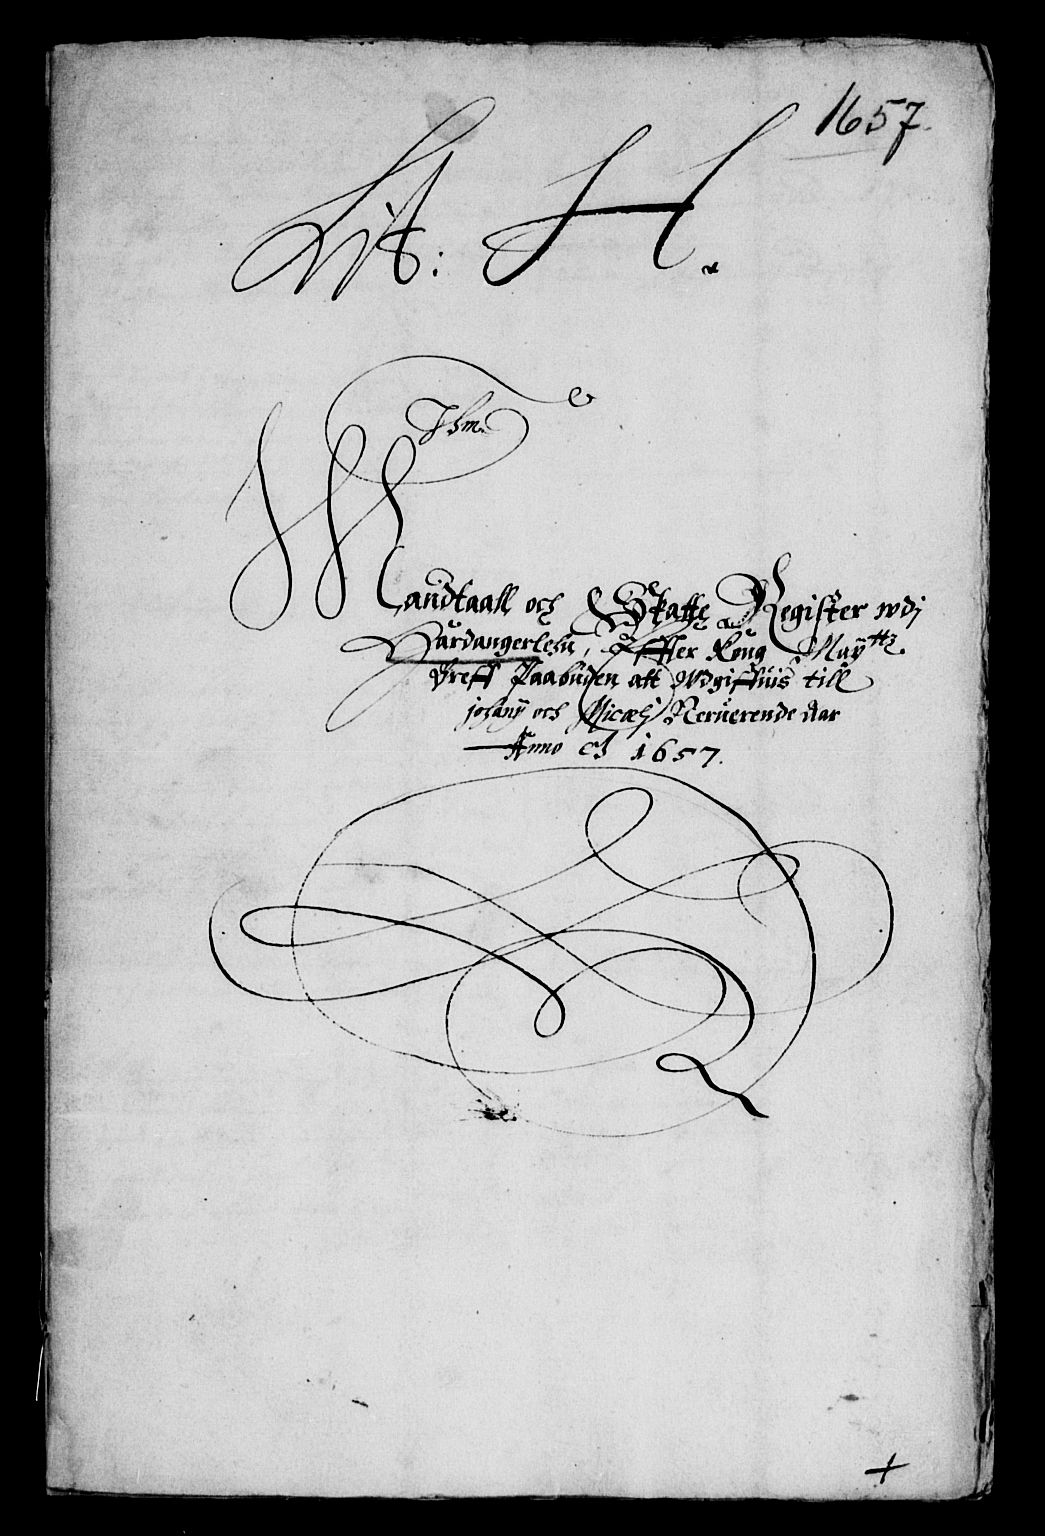 1657.
Lit: H.
Ihm.
Mandtaall och Skatte Register wdj
Hardangerlehn, Effter Kong May ttz
Breff Paabuden att Wdgiffuis till
johanj och Micaelj Neruerende Aar
Anno 1657.